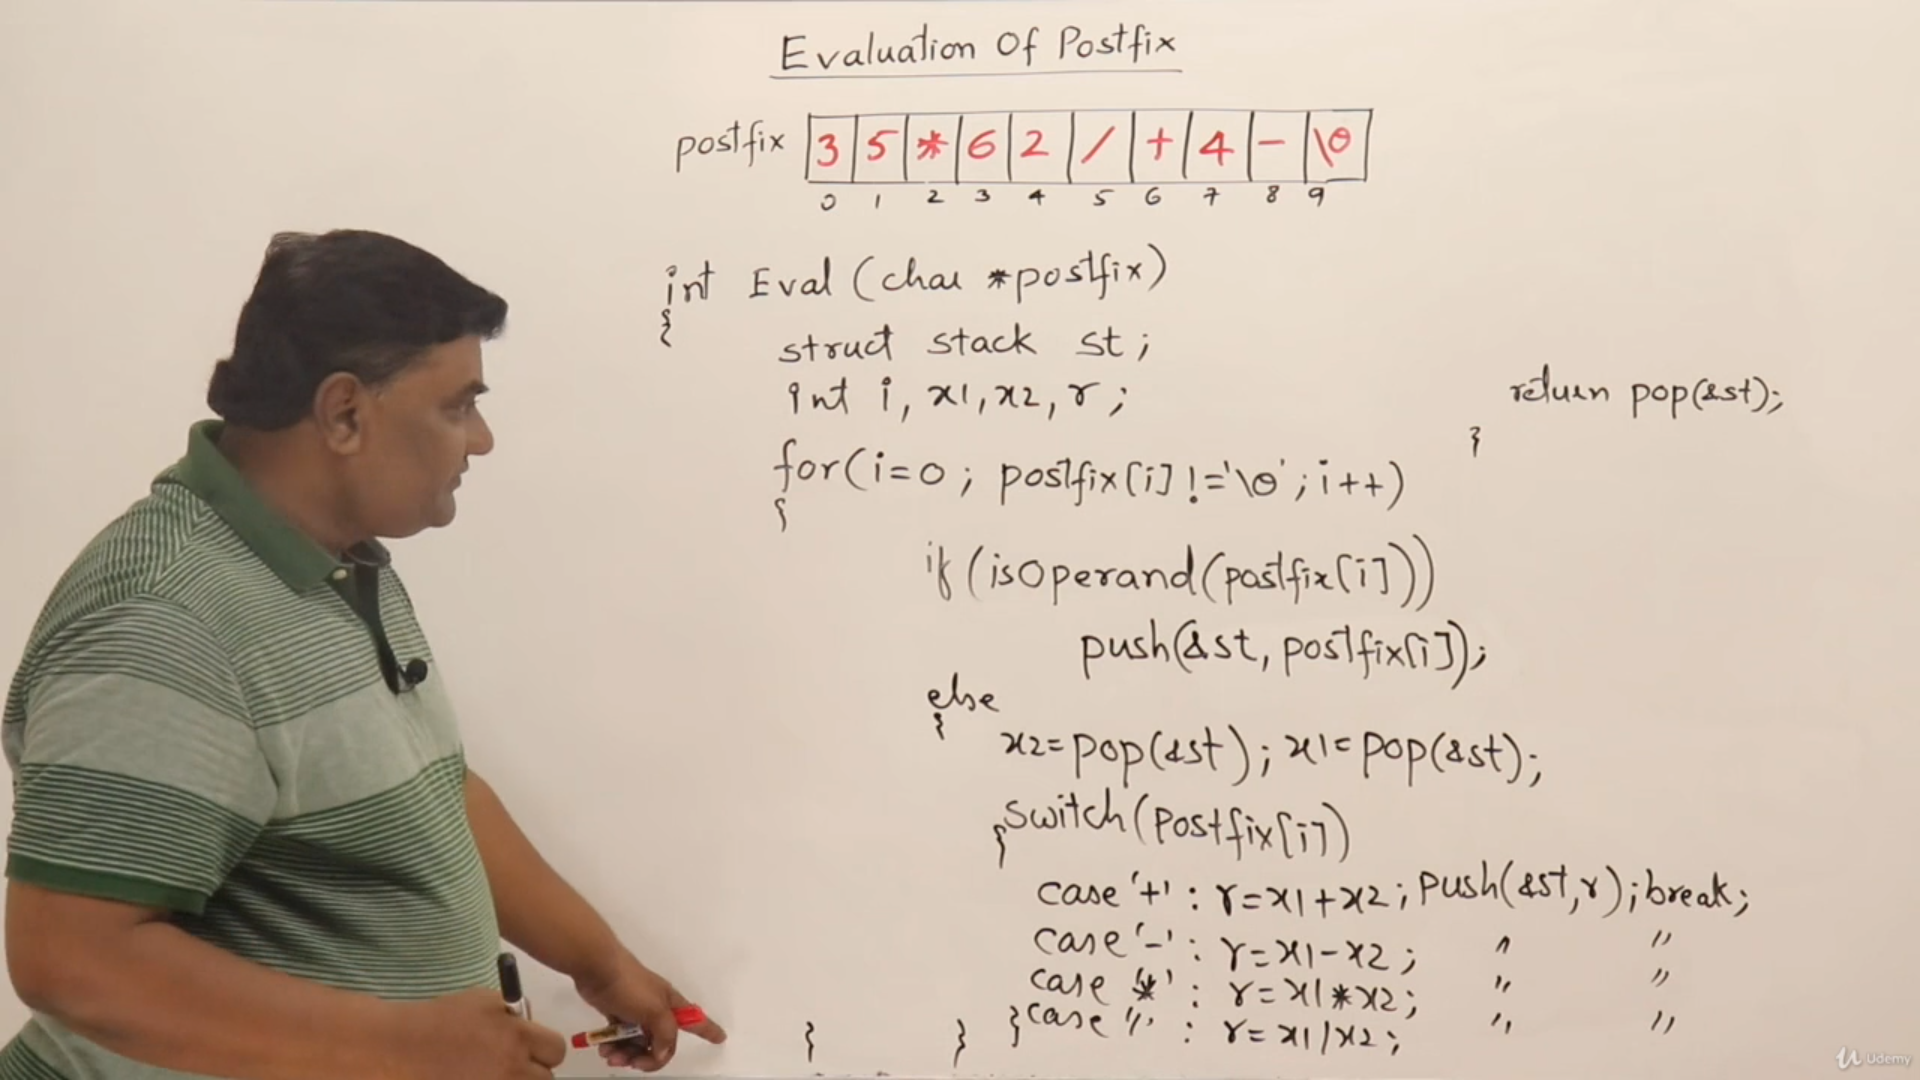 Evaluation Of Postfix
postfix 3 5 * 6 2 / + 4 - \0
0 1 2 3 4 5 6 7 8 9
int Eval (char *postfix)
{
struct stack st ;
int i, x1, x2, r ;
for(i=0 ; postfix[i] !='\0' ; i++)
{
if (isOperand(postfix[i]))
push(&st, postfix[i]);
else
{
x2=pop(&st) ; x1=pop(&st);
switch(postfix[i])
{
case '+' : r=x1+x2 ; push(&st,r) ; break;
case '-' : r=x1-x2 ; " "
case '*' : r=x1*x2; " "
} } } case '/' : r=x1/x2; " "
return pop(&st);
}
Udemy